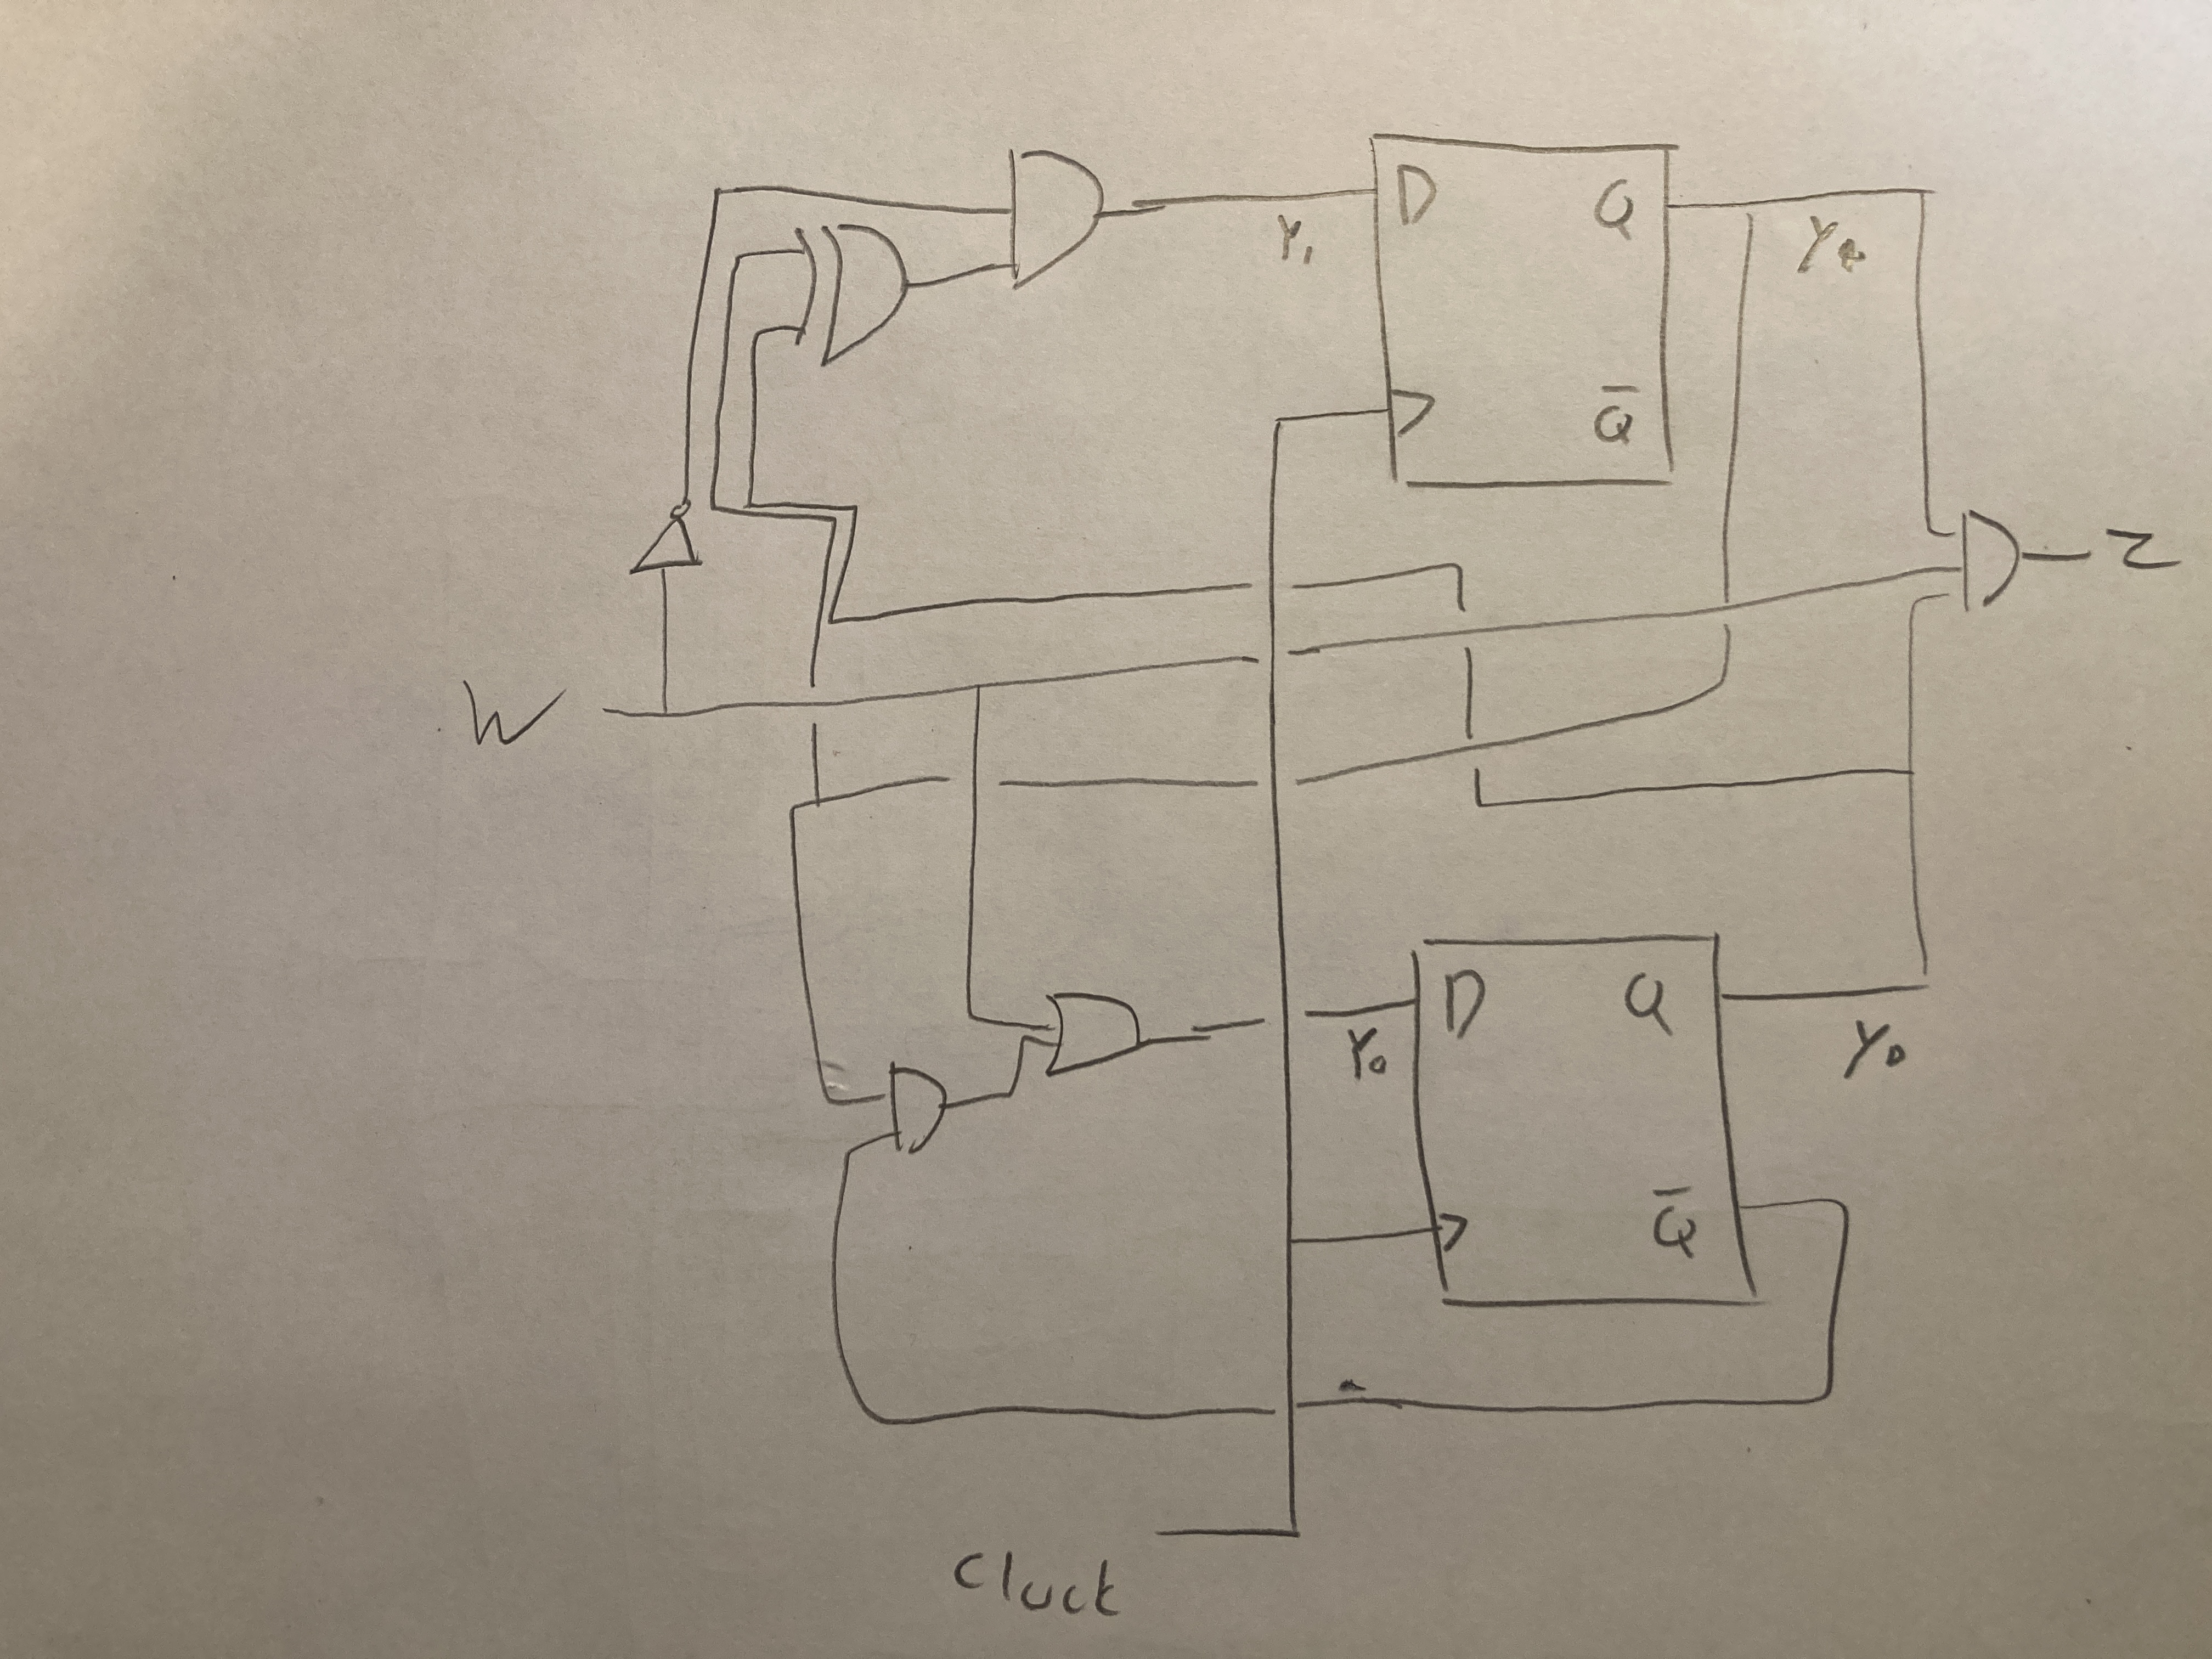 D Q
Y₁
Q̅
W
Z
D Q
Y₀ Y₀
Q̅
Cluck